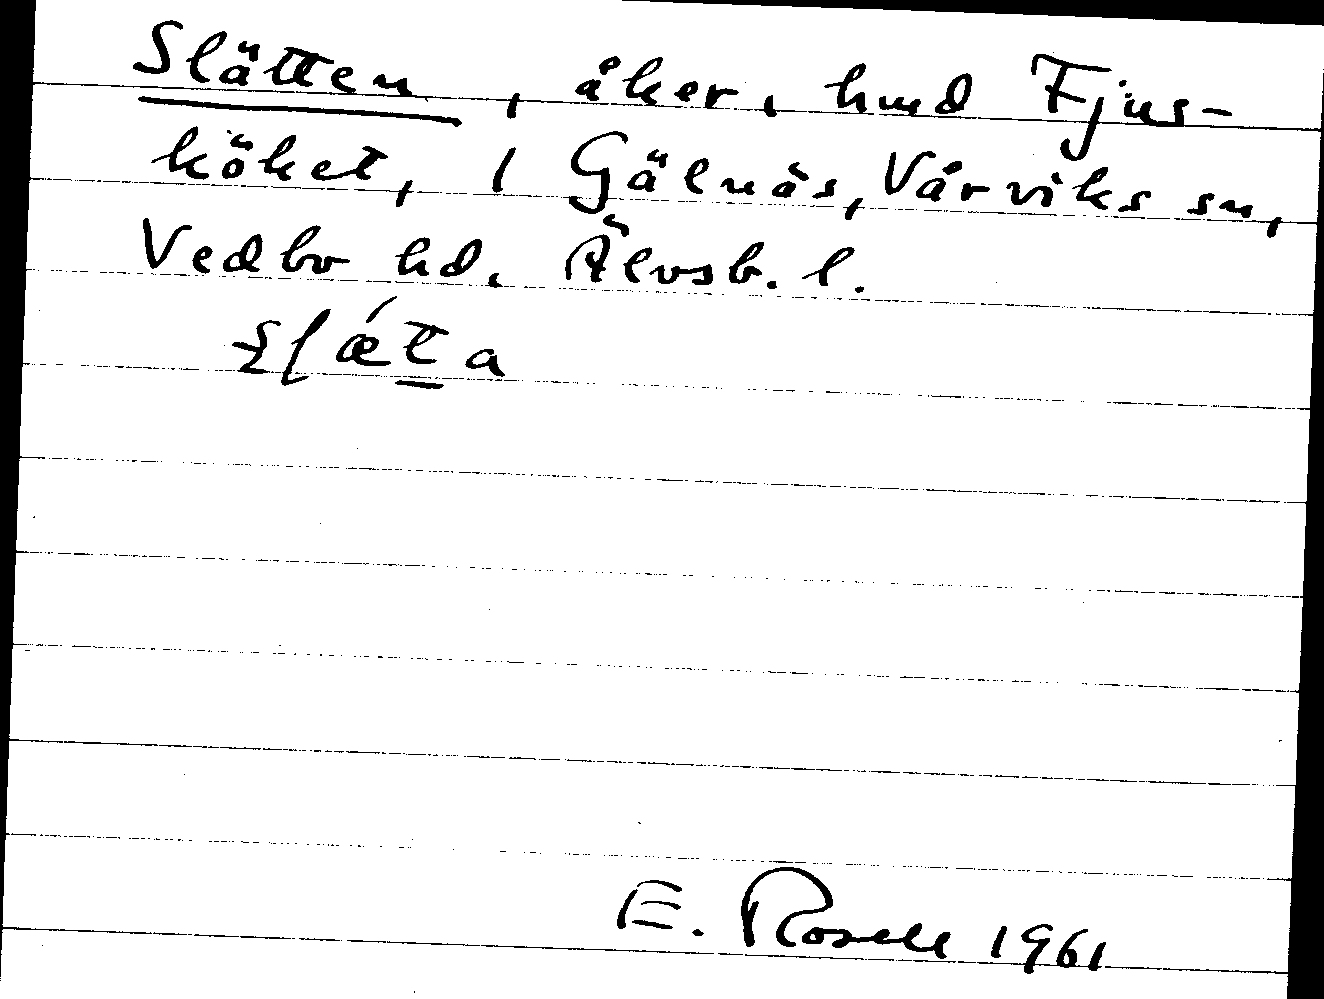 Slätten, åker, hmd Fjus-
köket, 1 Gälnäs, Vårviks sn,
Vedbo hd. Älvsb. l.
E. Rosell 1961